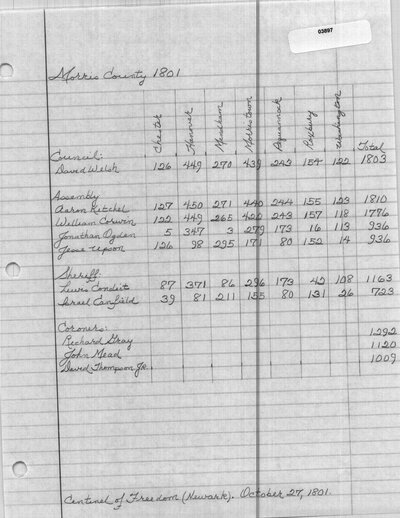 03897
Morris County 1801
Chester Hanover Mendham Morristown Pequannock Roxbury Washington Total
Council:
David Welsh 126 449 270 439 243 154 122 1803
Assembly:
Aaron Kitchel 127 450 271 440 244 155 123 1810
William Corwin 122 449 265 422 243 157 118 1776
Jonathan Ogden 5 347 3 279 173 16 113 936
Jesse Upson 126 98 295 171 80 152 14 936
Sheriff:
Lewis Condit 87 371 86 296 173 42 108 1163
Israel Canfield 39 81 211 155 80 131 26 723
Coroners:
Richard Gray 1292
John Mead 1120
David Thompson Jr. 1009
Centinel of Freedom (Newark). October 27, 1801.